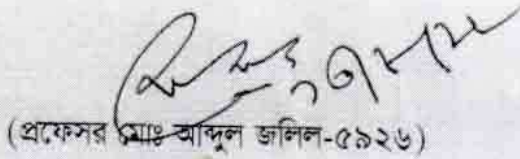 (প্রফেসর মোঃ আব্দুল জলিল-৫৯২৬)